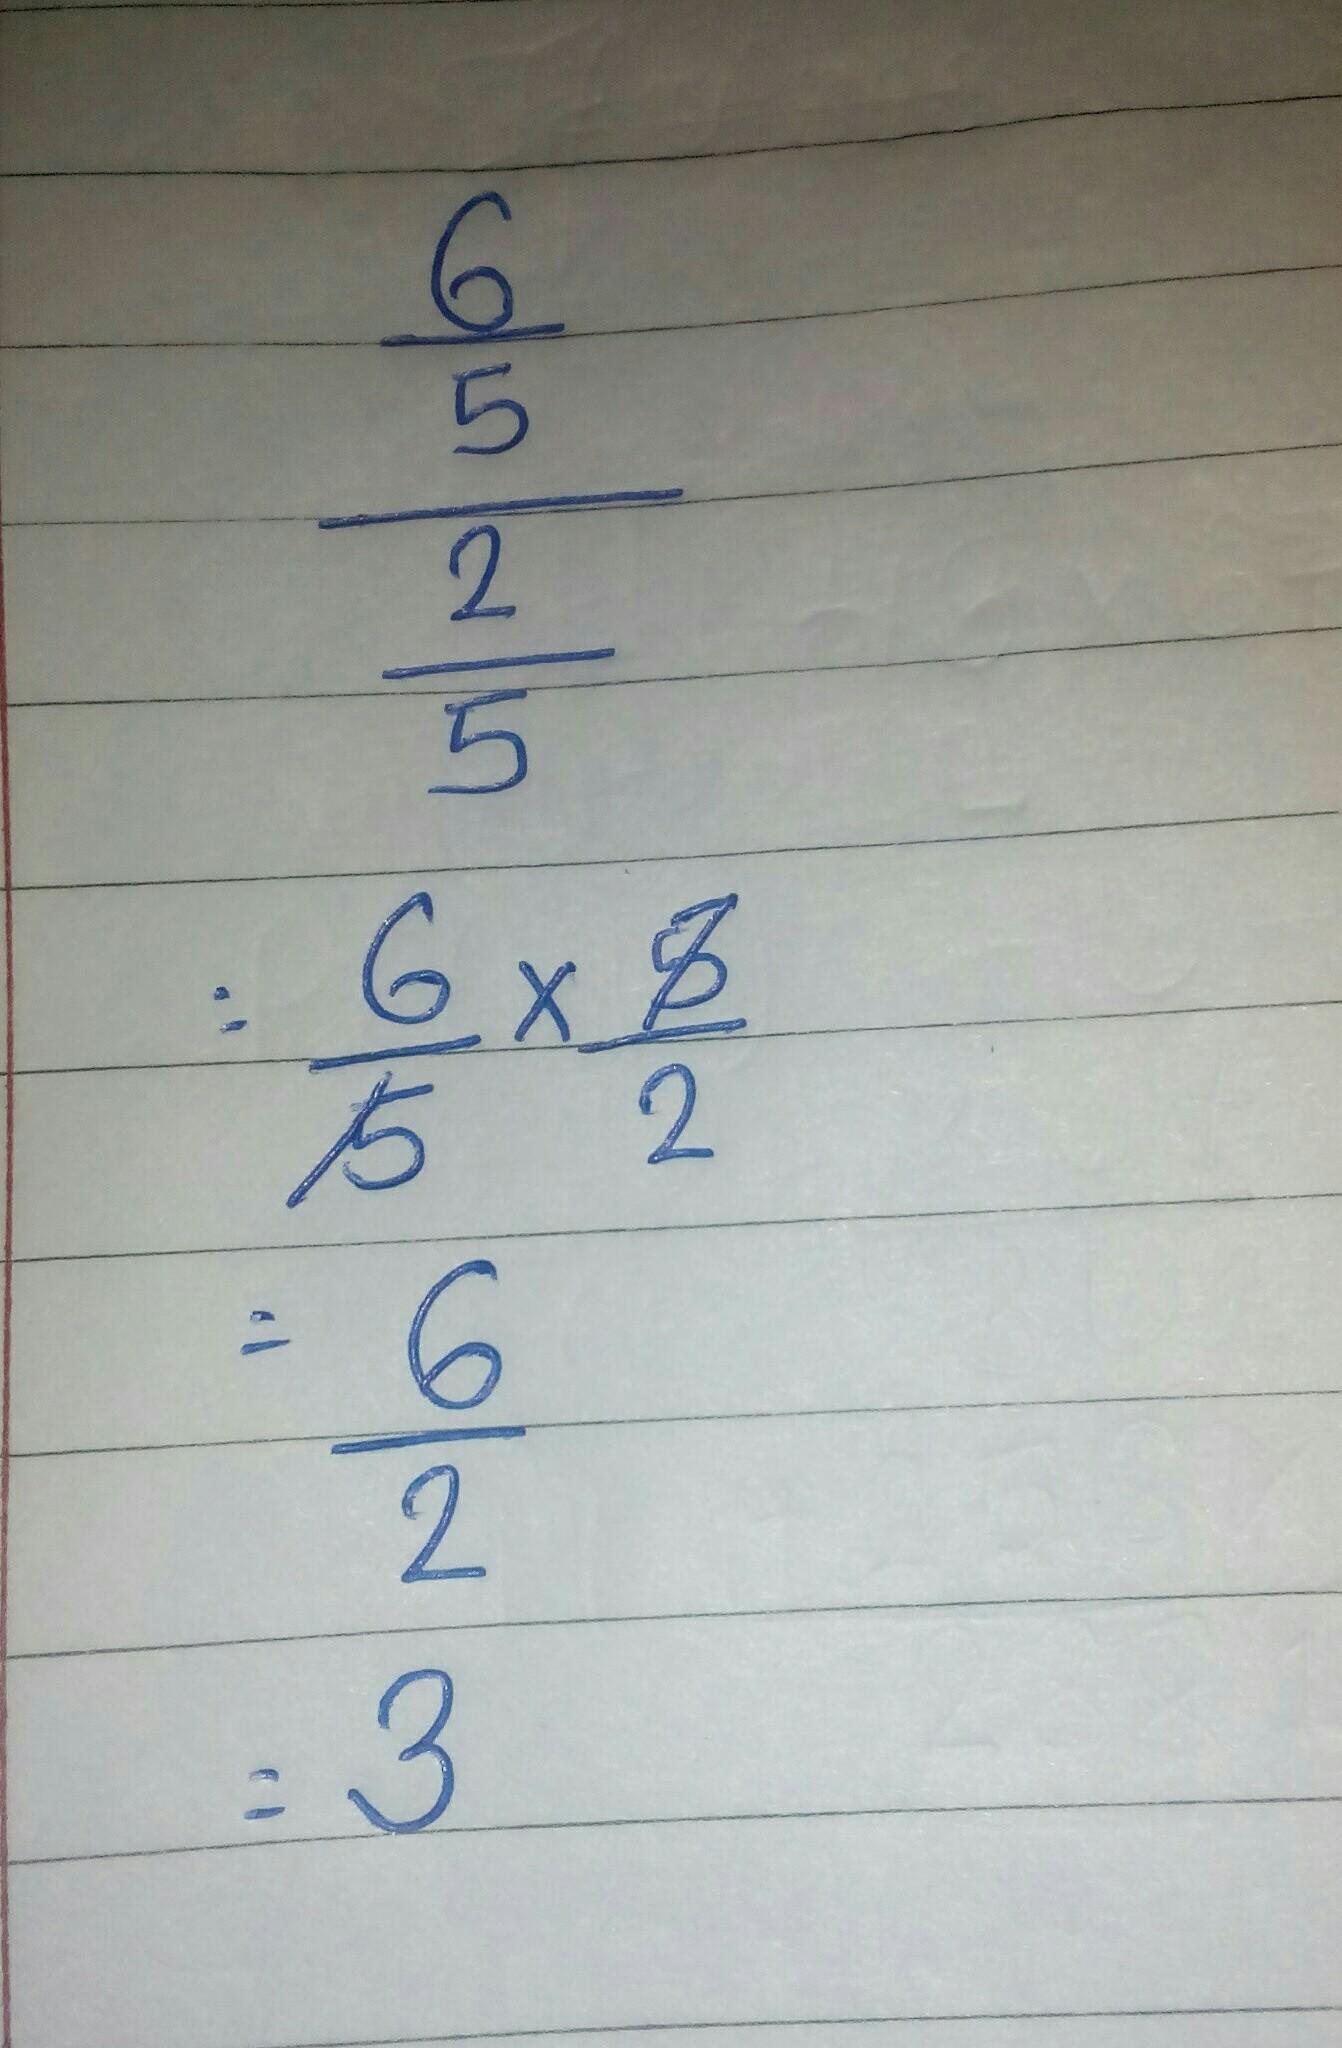 6
5
2
5
= 6/5 × 5/2
= 6/2
= 3